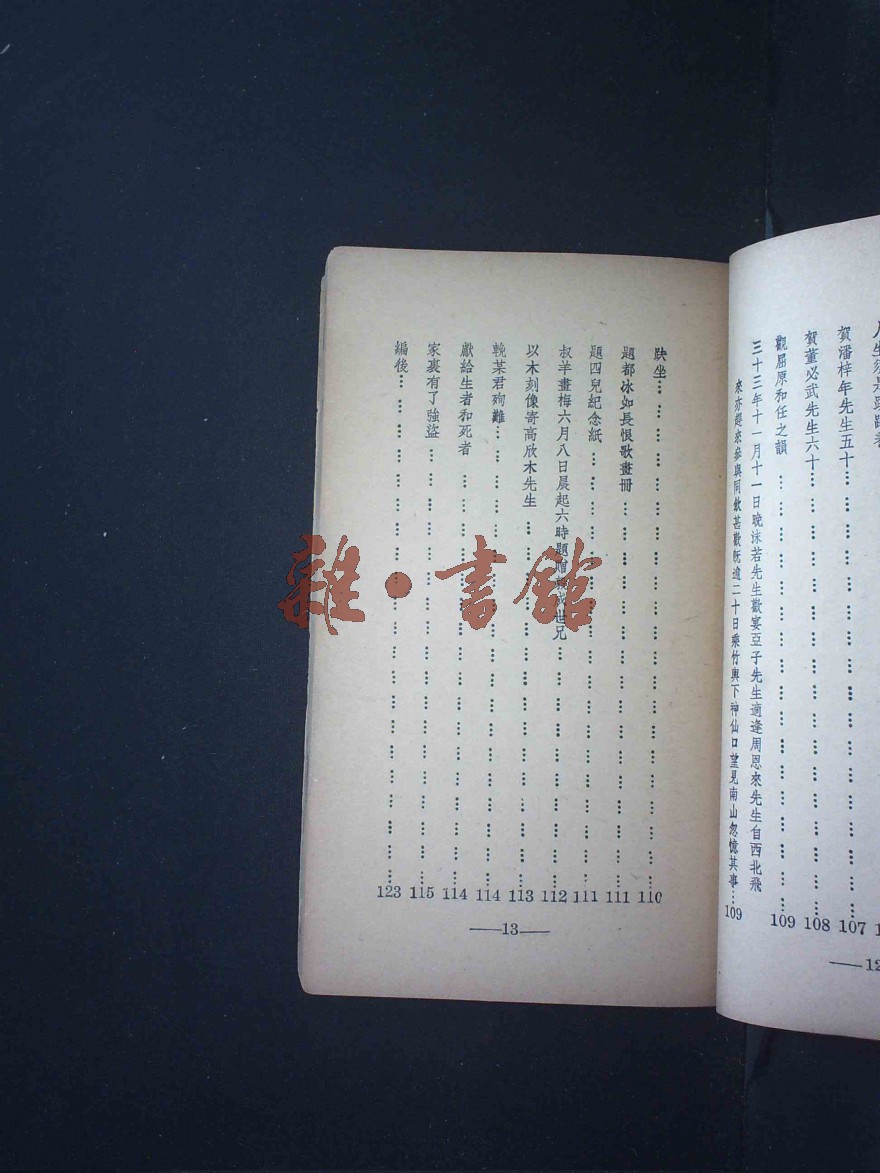 賀潘梓年先生五十 107
賀董必武先生六十 108
觀屈原和任之韻 109
三十三年十一月十一日晚沫若先生歡宴亞子先生適逢周恩來先生自西北飛
來亦趕來參與同飲甚歡旣逾二十日乘竹輿下神仙口望見南山忽憶其事 109
12
趺坐 110
題都冰如長恨歌畫冊 111
題四兒紀念紙 111
叔羊畫梅六月八日晨起六時題贈 世兄 112
以木刻像寄高欣木先生 113
輓某君殉難 114
獻給生者和死者 114
家裏有了強盜 115
編後 123
13
雜·書館